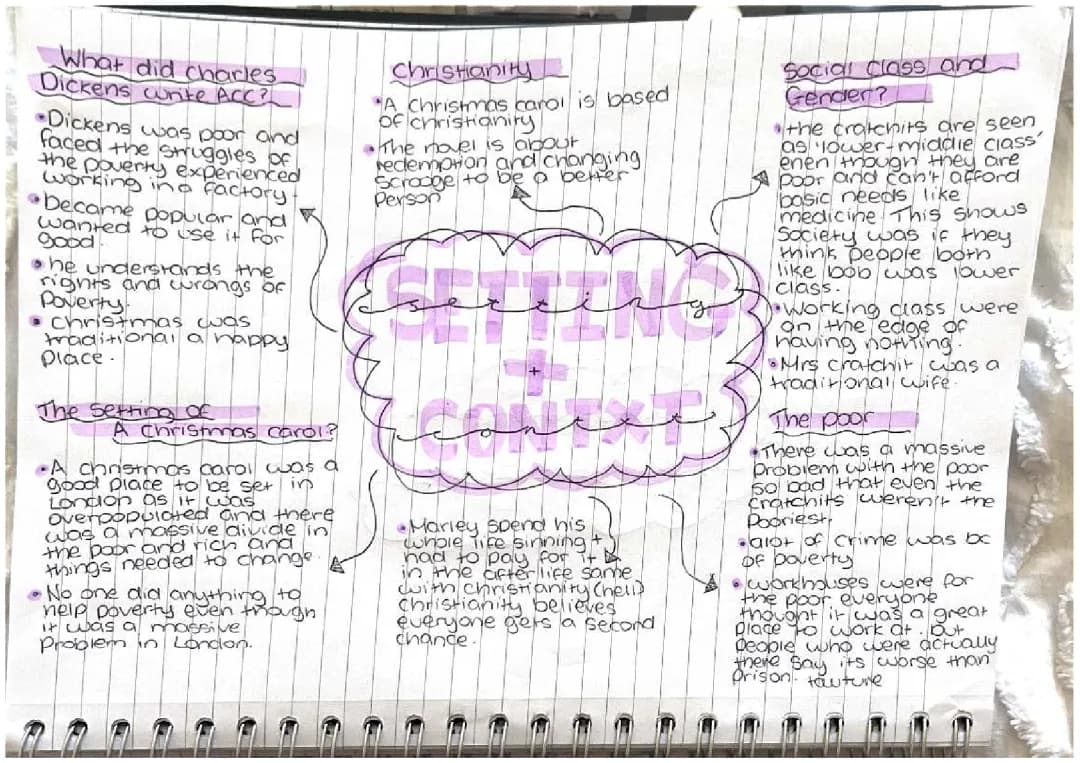 What did charles
Dickens write ACC?
•Dickens was poor and
faced the struggles of
the poverty experienced
working in a factory.
•became popular and
wanted to use it for
good.
•he understands the
rights and wrongs of
Poverty.
• Christmas was
traditional a happy
place.
Christianity
•A Christmas carol is based
of christianity
•The novel is about
redemption and changing
Scrooge to be a better
Person
Social Class and
Gender?
•the cratchits are seen
as 'lower-middle class'
enen though they are
poor and can't afford
basic needs like
medicine. This shows
Society was if they
think people both
like bob was lower
class.
•Working class were
on the edge of
having nothing.
•Mrs cratchit was a
traditional wife.
SETTING
setting
+
CONTXT
The Setting of
A Christmas carol?
•A christmas carol was a
good place to be set in
London as it was
overpopulated and there
was a massive divide in
the poor and rich and
things needed to change.
•No one did anything to
help poverty even though
it was a massive
Problem in London.
•Marley spend his
whole life sinning +
had to pay for it
in the afterlife same
with christianity (hell)
christianity believes
everyone gets a second
chance.
The poor
•There was a massive
Problem with the poor
so bad that even the
cratchits weren't the
Pooriest.
•alot of crime was bc
of poverty
•workhouses were for
the poor everyone
thought it was a great
place to work at. but
people who were actually
there say its worse than
prison. tawture